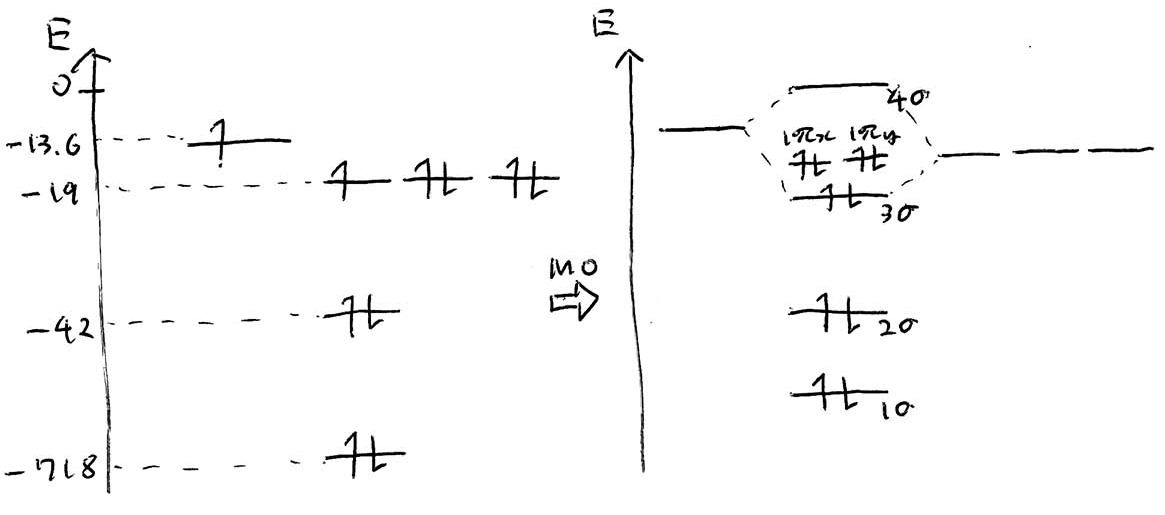 E
0
-13.6
-19
-42
-718
MO
E
4σ
1πx 1πy
3σ
2σ
1σ